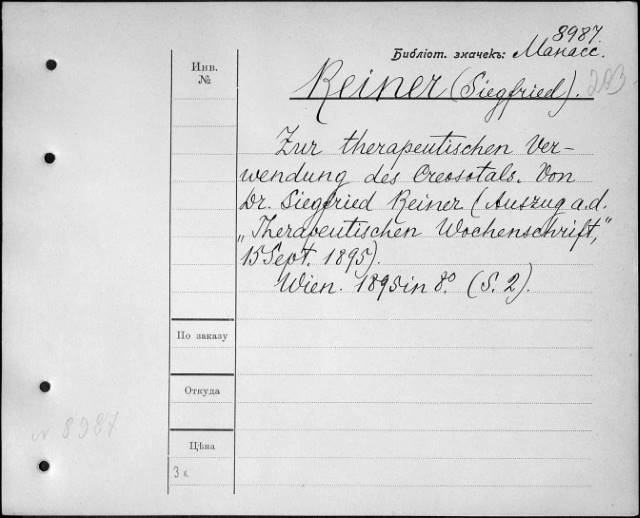 8987.
Библiот. значекъ: Манасс.
Инв.
№
Reiner (Siegfried). 203
Zur therapeutischen Ver-
wendung des Creosotals. Von
Dr. Siegfried Reiner (Auszug a. d.
„Therapeutischen Wochenschrift,"
15 Sept. 1895).
Wien. 1895 in 8º. (S. 2).
По заказу
Откуда
№ 8987
Цѣна
3 к.